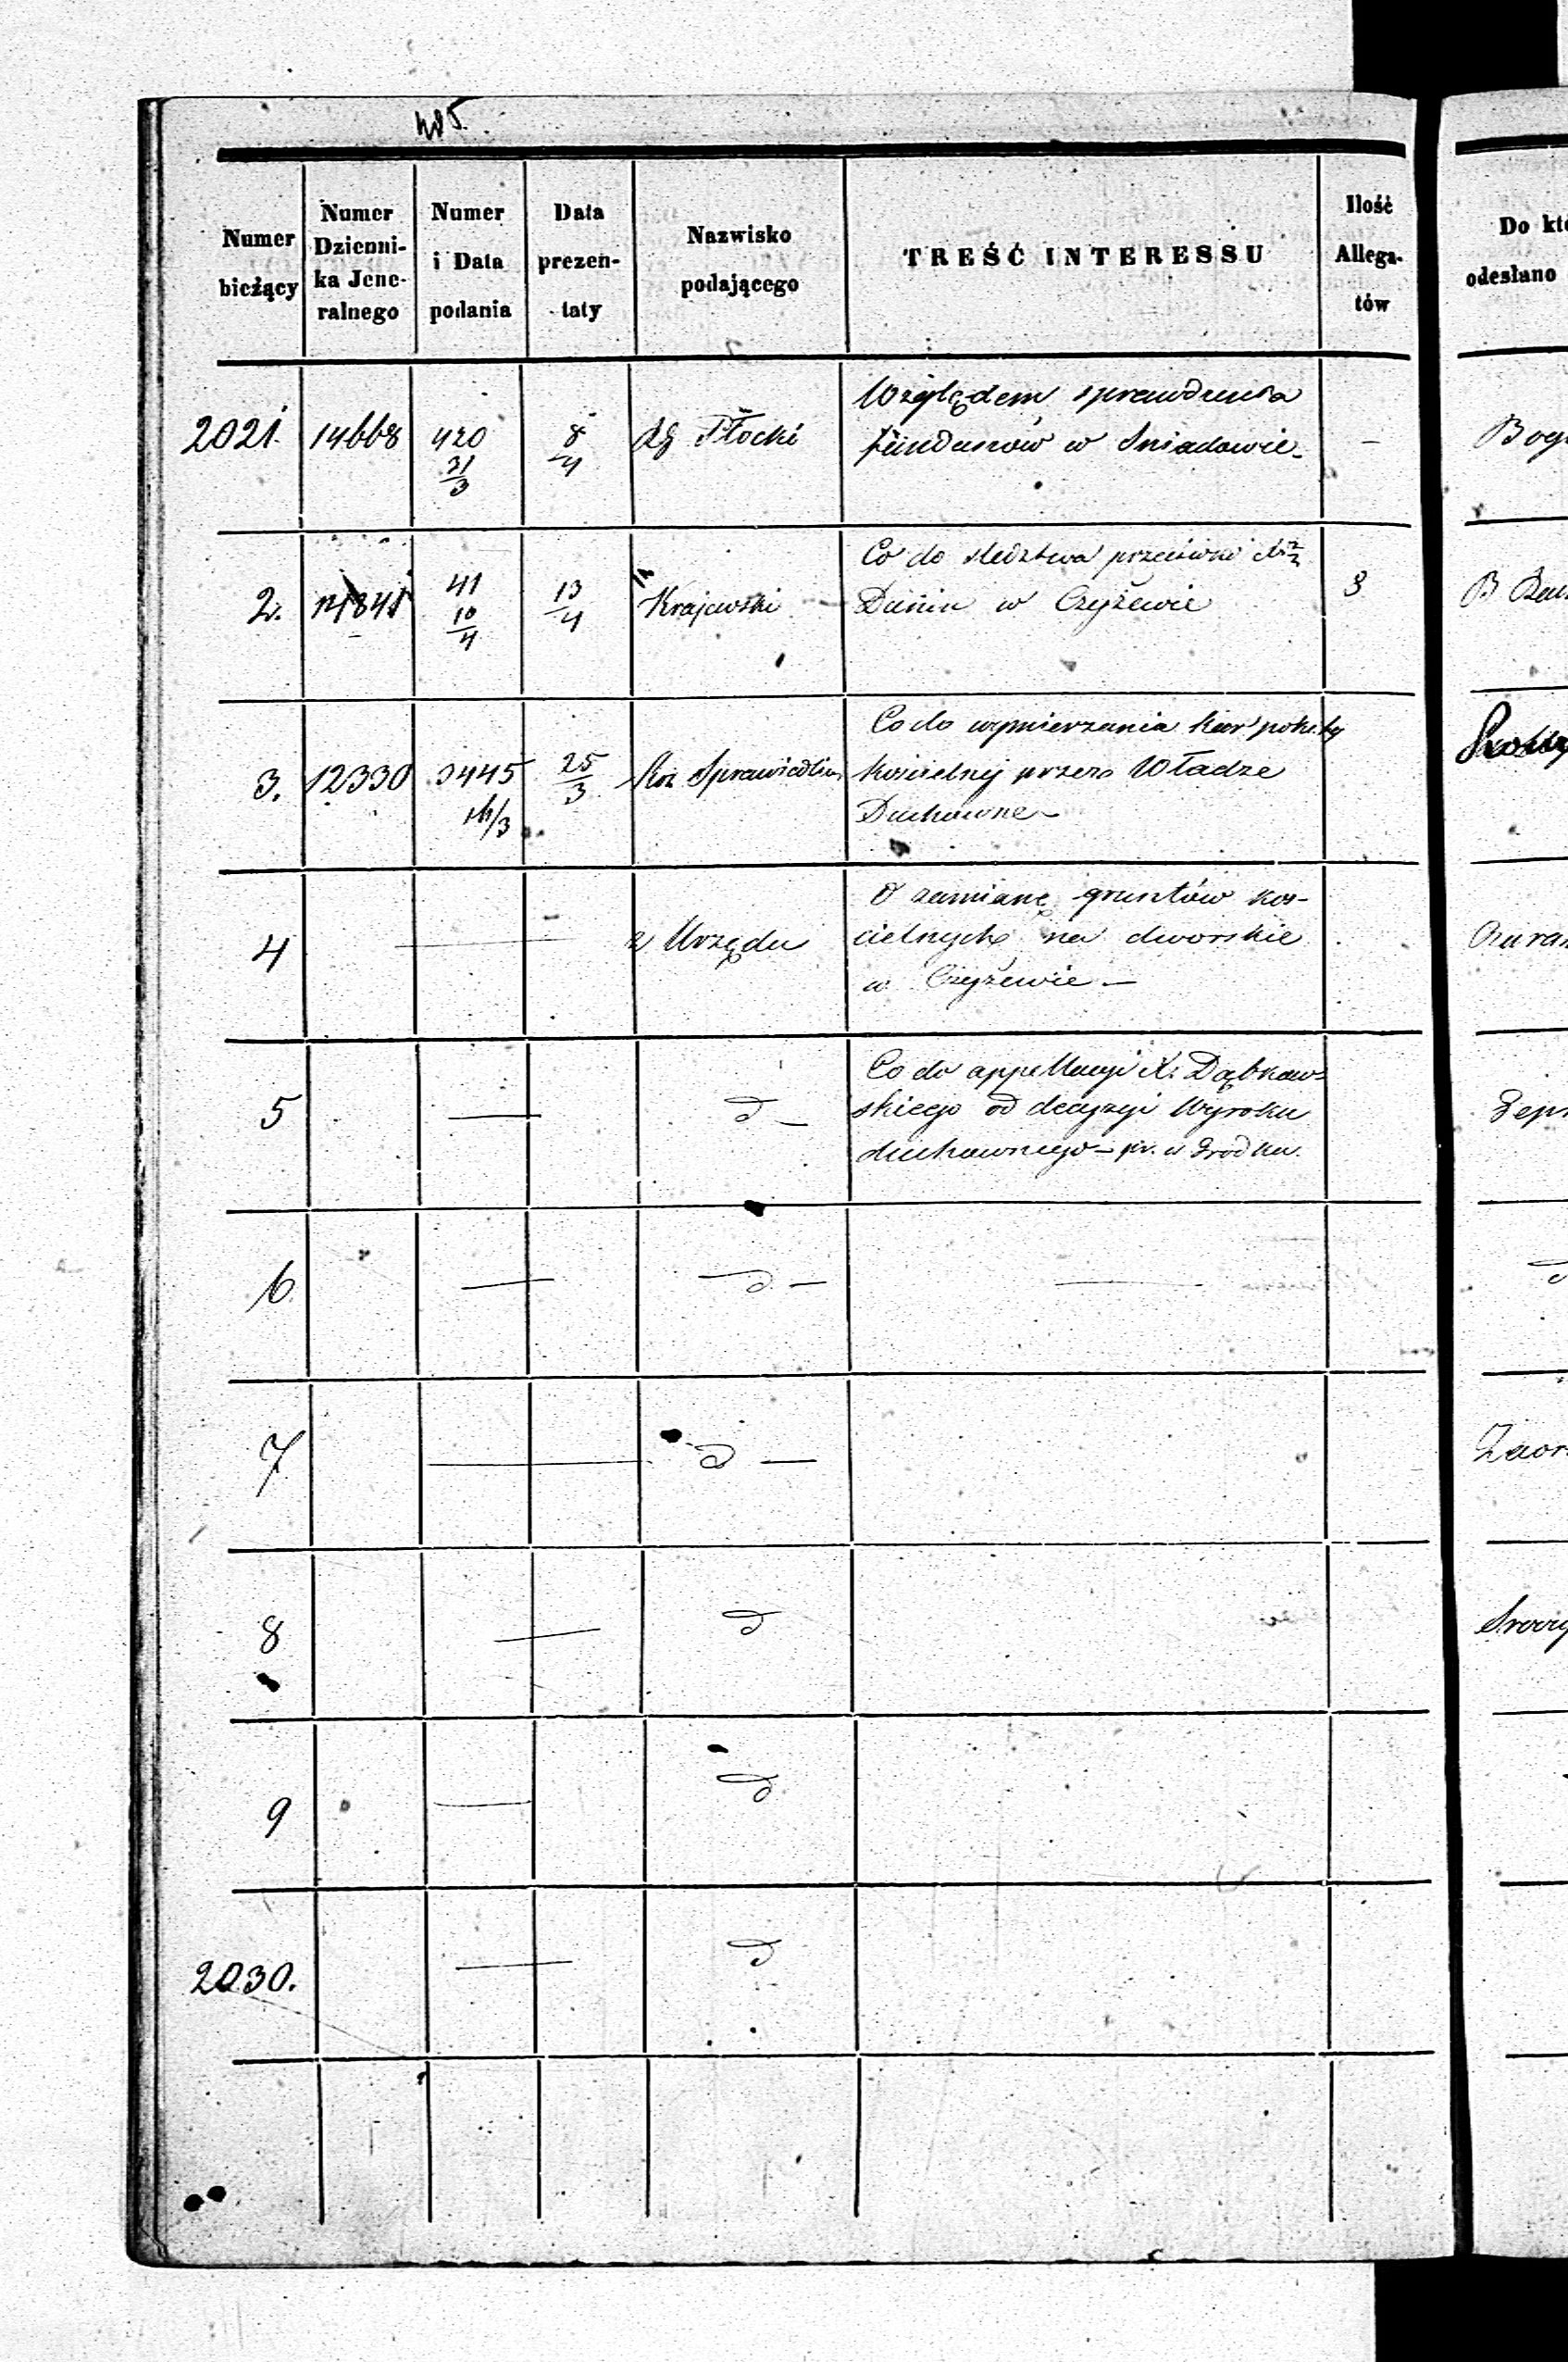 405.
Numer bieżący
Numer Dzienni- ka Jene- ralnego
Numer i Data podania
Data prezen- taty
Nazwisko podającego
TREŚĆ INTERESSU
Ilość Allega- tów
Do któ
odesłano
2021. 14668 420 31/3 8/4 Płocki
Względem sprawdzenia
funduszów w Sniadowie
—
Bog
2. 14841 41 10/4 13/4 Krajewski
Co do śledztwa przeciwko
Dunin w Czyżewie
3
B
3. 12330 3445 14/3 25/3 Kom Sprawiedliw
Co do wymierzania kar pokuty
kościelnej przez Władze
Duchowne —
4 — z Urzędu
O zamianę gruntów koś-
cielnych na dworskie
w Czyżewie —
5 — d —
Co do appellacyi X. Dąbkow-
skiego od decyzyi Wyroku
duchownego — pr. w Grodku.
6 — d — —
7 — d —
8 — d
9 — d
2030. — d